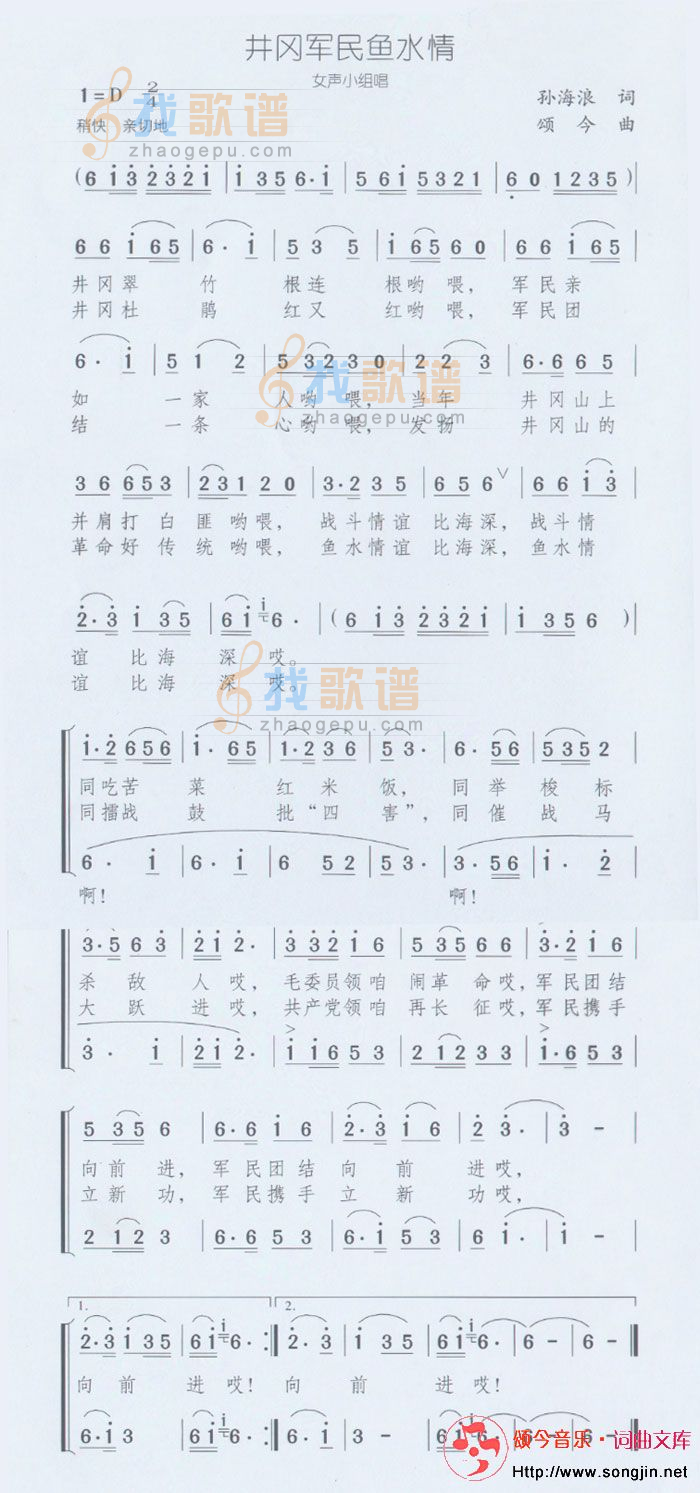 井冈军民鱼水情
女声小组唱
1=D 2/4
孙海浪 词
稍快 亲切地
颂今 曲
找歌谱
zhaogepu.com
(6 i3 2321 | i 35 6·i | 5 6i 5321 | 60 1235) |
66 i65 | 6·i | 53 5 | i65 60 | 66 i65 |
井冈翠 竹 根连 根哟喂, 军民亲
井冈杜 鹃 红又 红哟喂, 军民团
6·i | 51 2 | 53230 | 22 3 | 6·6 65 |
如 一家 人哟喂, 当年 井冈山上
结 一条 心哟喂, 发扬 井冈山的
找歌谱
zhaogepu.com
36 653 | 231 20 | 3·2 35 | 65 6 ∨ | 66 i3 |
并肩打 白匪哟喂, 战斗情谊 比海深, 战斗情
革命好 传统哟喂, 鱼水情谊 比海深, 鱼水情
2·3 i 35 | 6i 6· | (6 i3 2321 | i 35 6) |
谊 比海 深哎。
谊 比海 深哎。
找歌谱
zhaogepu.com
1·2 656 | i· 65 | 1·2 36 | 53· | 6·56 | 5352 |
同吃苦 菜 红米 饭, 同举梭标
同擂战 鼓 批“四 害”, 同催战马
6· i | 6· i | 6 52 | 53· | 3·56 | i· 2 |
啊! 啊!
3·5 63 | 2i2· | 33 2i6 | 535 66 | 3·2 i6 |
杀敌 人哎, 毛委员领咱 闹革 命哎, 军民团结
大跃 进哎, 共产党领咱 再长 征哎, 军民携手
3· i | 2i2· | ii 653 | 21233 | 1·6 53 |
5 35 6 | 6·6 i6 | 2·3 i6 | 23· | 3 – |
向前 进, 军民团结 向 前 进哎,
立新 功, 军民携手 立 新 功哎,
2 12 3 | 6·6 53 | 6·i 53 | 6i· | i – |
1. 2.
2·3 i 35 | 6i 6· :| 2·3 i 35 | 6i 6· | 6 – | 6 – |
向 前 进哎! 向 前 进哎!
6·i 3 | 6i 6· :| 6·i 3 | 6i 6· | 6 – | 6 – |
颂今音乐·词曲文库
Http://www.songjin.net